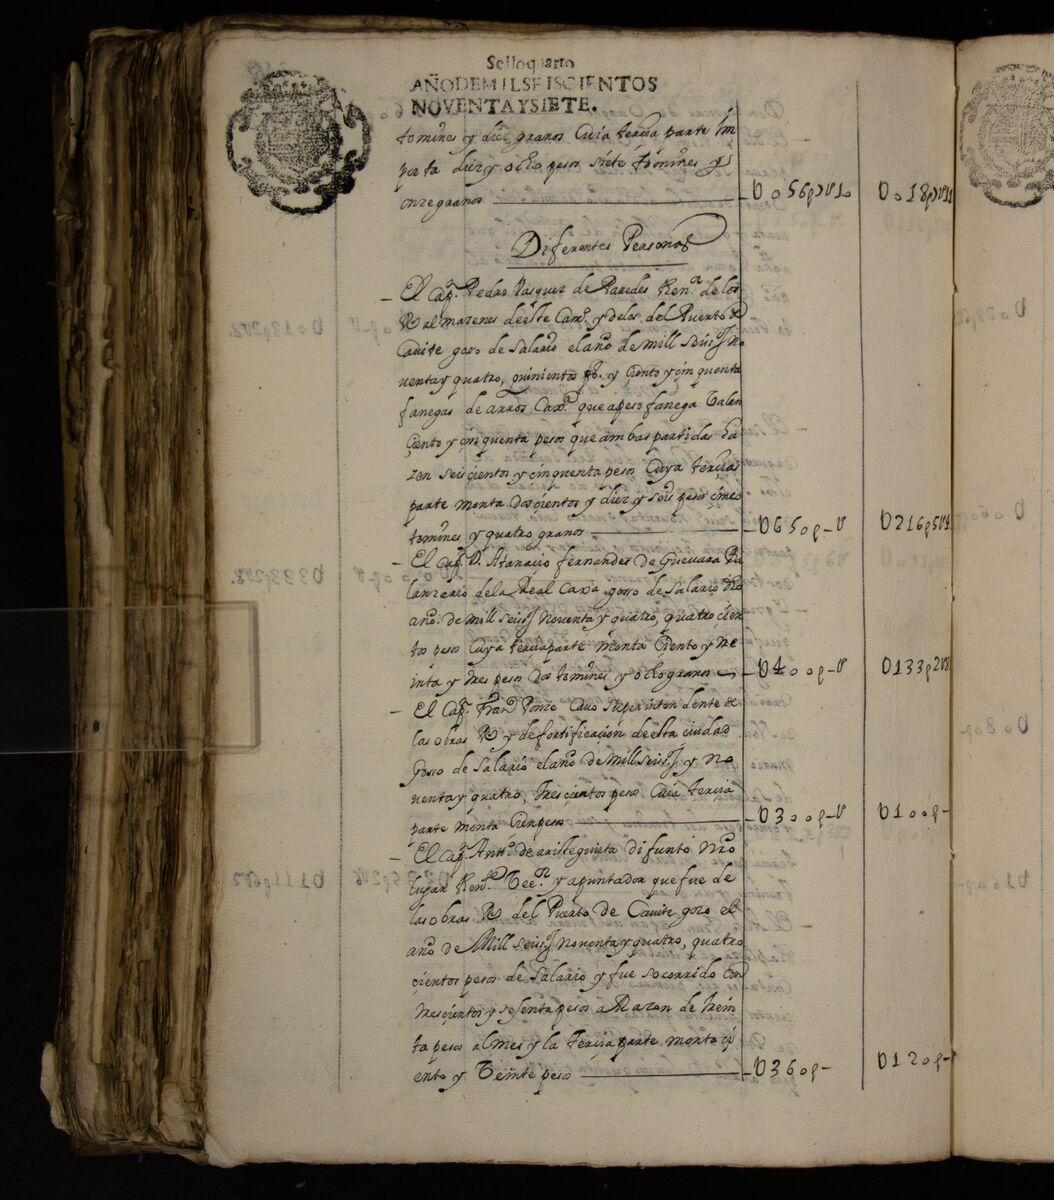 Selloquarto
AÑODEMILSEISCIENTOS
NOVENTAYSIETE.
tomines y diez granos Cuia terçia parte im
porta diez y ocho pesos siete tomines y
onze granos — U056p7U10 U018p7U11
Diferentes Personas
El Capn. Pedro Vasquez de Paredes then.r de los
Rs almazenes de este Campo y delos del Puerto de
Cauite gozo de Salario el año de mill Seisçs no
uenta y quatro, quinientos ps. y çiento y çinquenta
fanegas de arros que a peso fanega Valen
Çiento y çinquenta pesos que ambas partidas ha
zen seisçientos y çinquenta pesos Cuya terçia
parte monta dosçientos y diez y seis pesos çinco
tomines y quatro granos — U650p-U U216p5U4
El Capn. D. Atanacio fernandes de Gueuara Ba
lanzario dela Real Caxa gosso de Salario dho
año de mill seisçs noventa y quatro, quatro çien
tos pesos Cuya terçia parte monta Çiento y tre
inta y tres pesos dos tomines y ocho granos — U400p-U U133p2U8
El Capn. Franco Ponze Cauo Superintendente de
las obras Rs y de fortificaçion de esta ciudad
Gosso de Salario el año de Mill seisçs y no
uenta y quatro, tresçientos pesos Cuia terçia
parte monta Çien pesos — U300p-U U100p-
El Capn. Antto. de aristeguieta difunto
lugar then.te Vee.or y apuntador que fue de
las obras Rs del Puerto de Cauite gozo el
año de Mill seisçs noventa y quatro, quatro
çientos pesos de Salario y fue socorrido con
tresçientos y sesenta pesos a Razon de trein
ta pesos al mes y la terçia parte monta çi
ento y Veinte pesos — U360p- U120p-